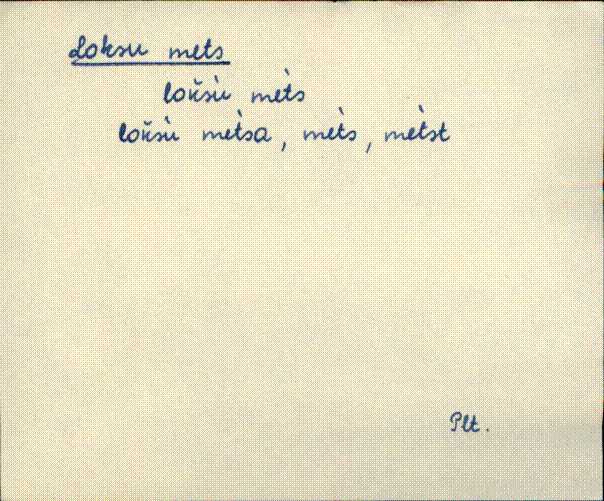 Loksu mets
lok̆sù met̀s
lok̆sù met̀sa, met̀s, met̀st
Plt.